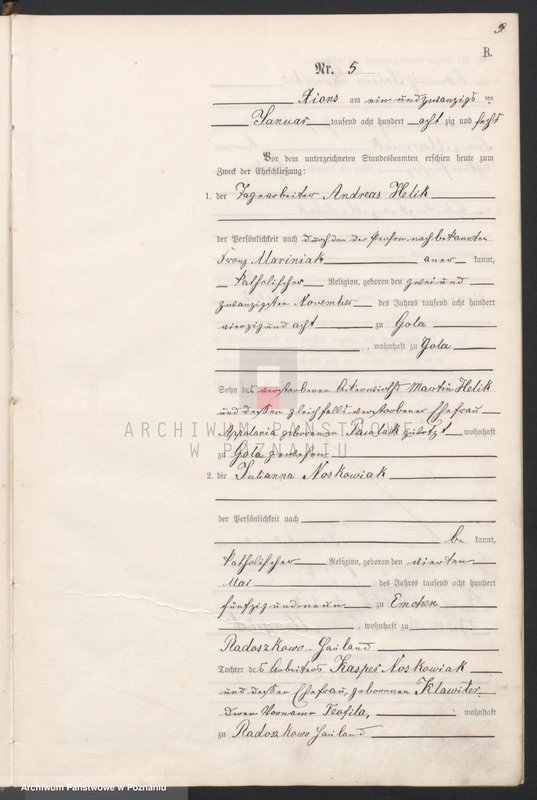 9
B.
Nr. 5
Xions am ein und zwanzigsten
Januar tausend acht hundert acht zig und sechs
Vor dem unterzeichneten Standesbeamten erschien heute zum
Zweck der Eheschließung:
1. der Tagearbeiter Andreas Helik
der Persönlichkeit nach durch den der Person nach bekannten
Franz Mariniak aner kannt,
katholischer Religion, geboren den zwei und
zwanzigsten November des Jahres tausend acht hundert
vierzig und acht zu Gola
, wohnhaft zu Gola
Sohn des verstorbenen Martin Helik
und dessen gleichfalls verstorbener Ehefrau
Appolonia geborenen Pawlak zuletzt wohnhaft
zu Gola gewesen
ARCHIWUM PAŃSTWOWE
W POZNANIU
2. die Julianna Noskowiak
der Persönlichkeit nach
be kannt,
katholischer Religion, geboren den vierten
Mai des Jahres tausend acht hundert
fünfzig und neun zu Emchen
, wohnhaft zu
Radoszkowo Hauland
Tochter des Arbeiters Kasper Noskowiak
und dessen Ehefrau, geborenen Klawiter
deren Vorname Teofila, wohnhaft
zu Radoszkowo Hauland
Archiwum Państwowe w Poznaniu